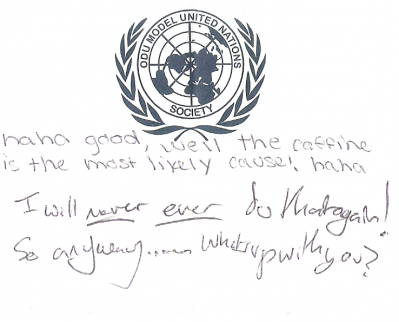 ODU MODEL UNITED NATIONS
SOCIETY
haha good, well the caffine
is the most likely cause! haha
I will never ever do that again!
So anyway..... whats up with you?